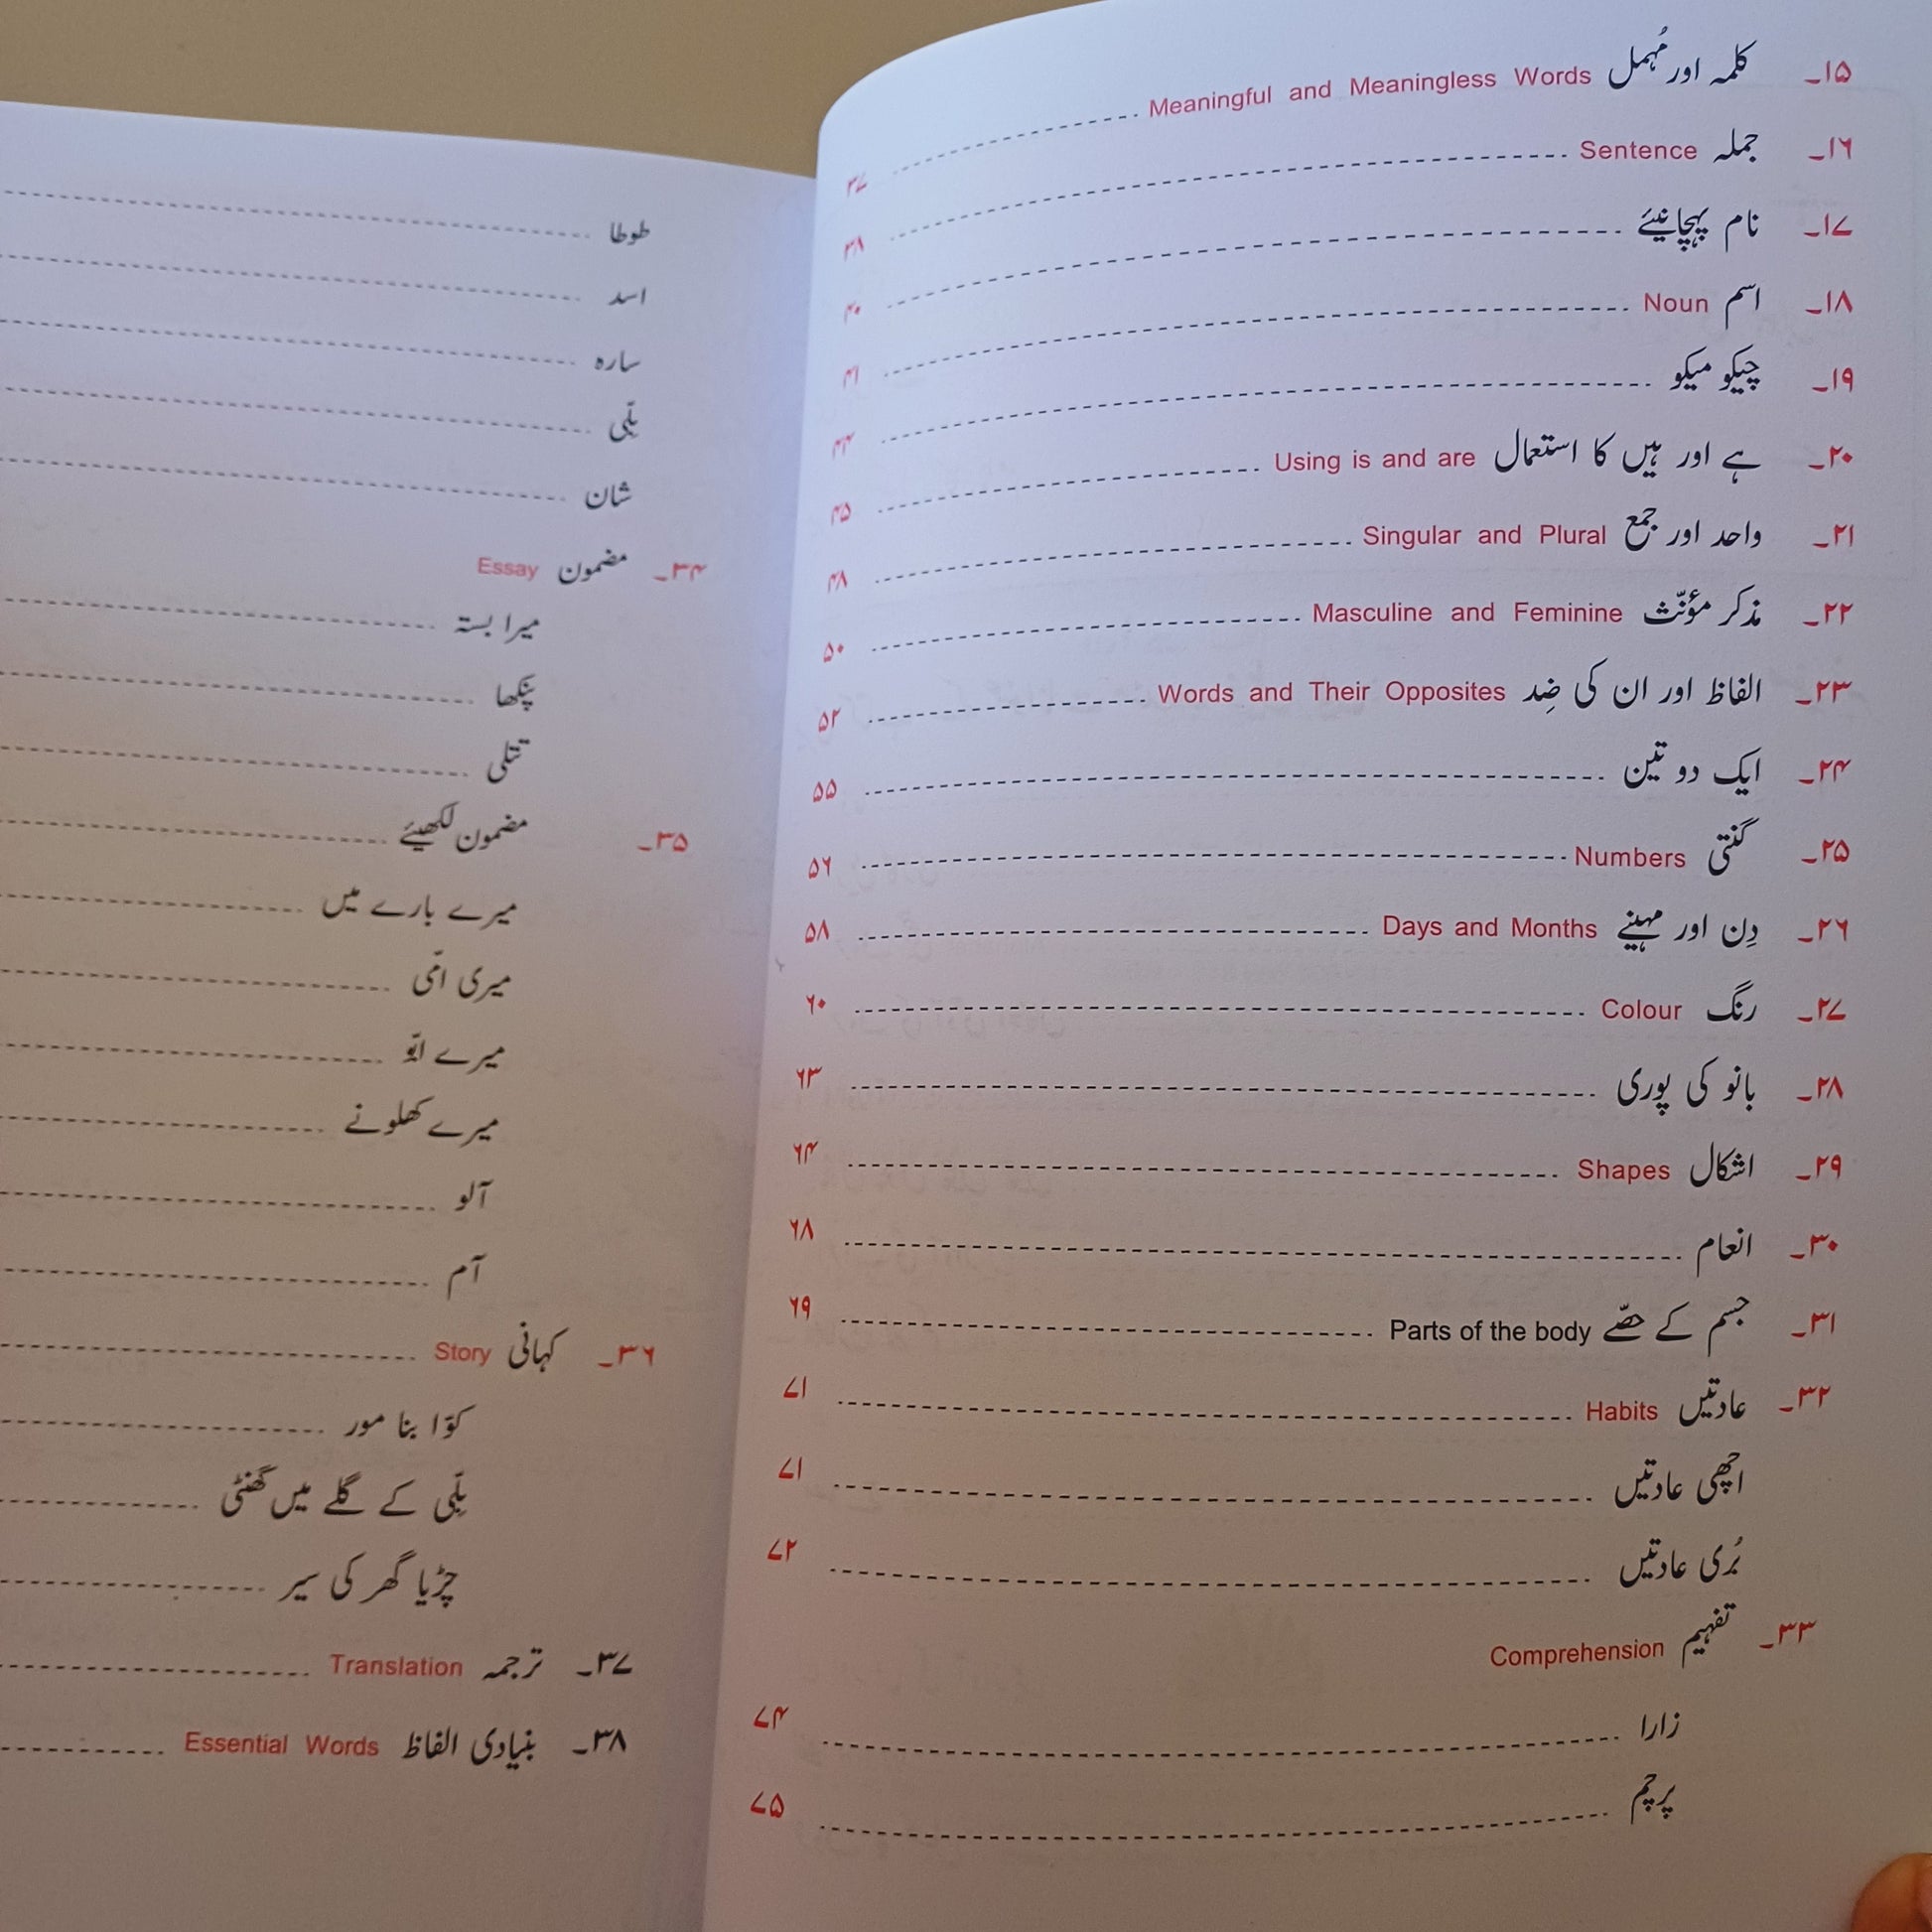 ۱۵۔ کلمہ اور مُہمل Meaningful and Meaningless Words ۳۷
۱۶۔ جملہ Sentence ۳۸
۱۷۔ نام پہچانیئے ۴۰
۱۸۔ اسم Noun ۴۱
۱۹۔ چیکو میکو ۴۴
۲۰۔ ہے اور ہیں کا استعمال Using is and are ۴۵
۲۱۔ واحد اور جمع Singular and Plural ۴۸
۲۲۔ مذکر مؤنّث Masculine and Feminine ۵۰
۲۳۔ الفاظ اور ان کی ضِد Words and Their Opposites ۵۲
۲۴۔ ایک دو تین ۵۵
۲۵۔ گنتی Numbers ۵۶
۲۶۔ دِن اور مہینے Days and Months ۵۸
۲۷۔ رنگ Colour ۶۰
۲۸۔ بانو کی پوری ۶۳
۲۹۔ اشکال Shapes ۶۴
۳۰۔ انعام ۶۸
۳۱۔ جسم کے حصّے Parts of the body ۶۹
۳۲۔ عادتیں Habits ۷۱
اچھی عادتیں ۷۱
بُری عادتیں ۷۲
۳۳۔ تفہیم Comprehension
زارا ۷۴
پرچم ۷۵
طوطا
اسد
سارہ
بلّی
شان
۳۴۔ مضمون Essay
میرا بستہ
پنکھا
تتلی
۳۵۔ مضمون لکھیئے
میرے بارے میں
میری امّی
میرے ابّو
میرے کھلونے
آلو
آم
۳۶۔ کہانی Story
کوّا بنا مور
بلّی کے گلے میں گھنٹی
چڑیا گھر کی سیر
۳۷۔ ترجمہ Translation
۳۸۔ بنیادی الفاظ Essential Words